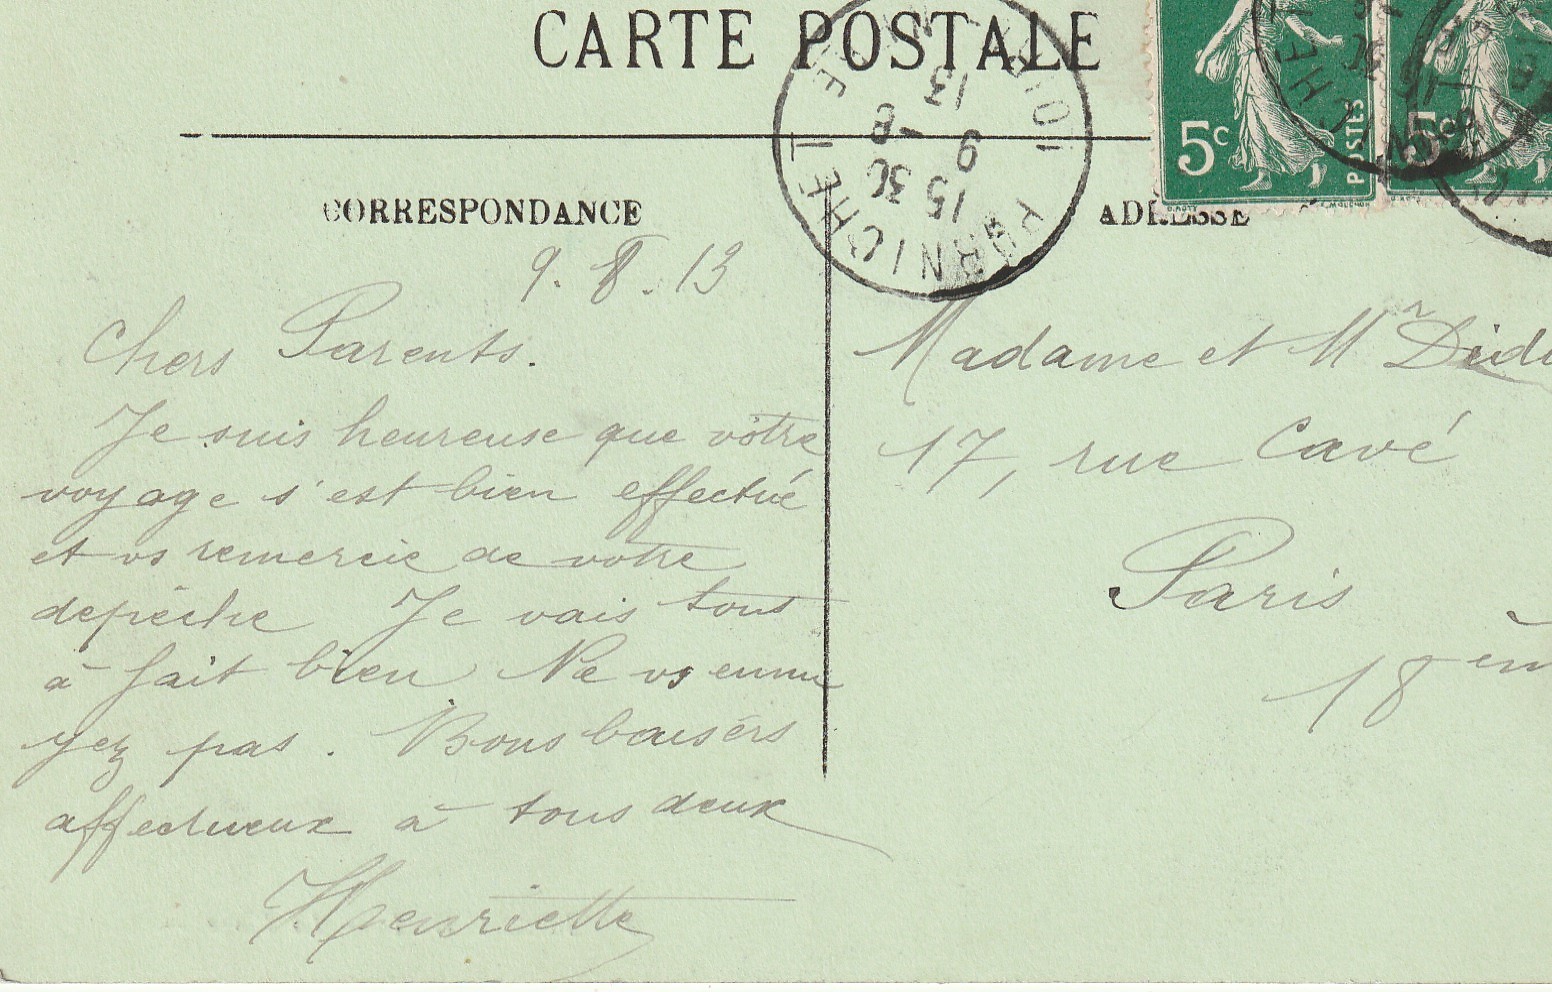 CARTE POSTALE
5c POSTES
5c
PORNICHET
15 30
9 -8
13
CORRESPONDANCE
ADRESSE
9.8.13
Chers Parents.
Je suis heureuse que votre
voyage s'est bien effectué
et vs remercie de votre
depêche Je vais tout
à fait bien Ne vs ennu
yez pas. Bons baisers
affectueux à tous deux
Henriette
Madame et Mr
17, rue Cavé
Paris
18